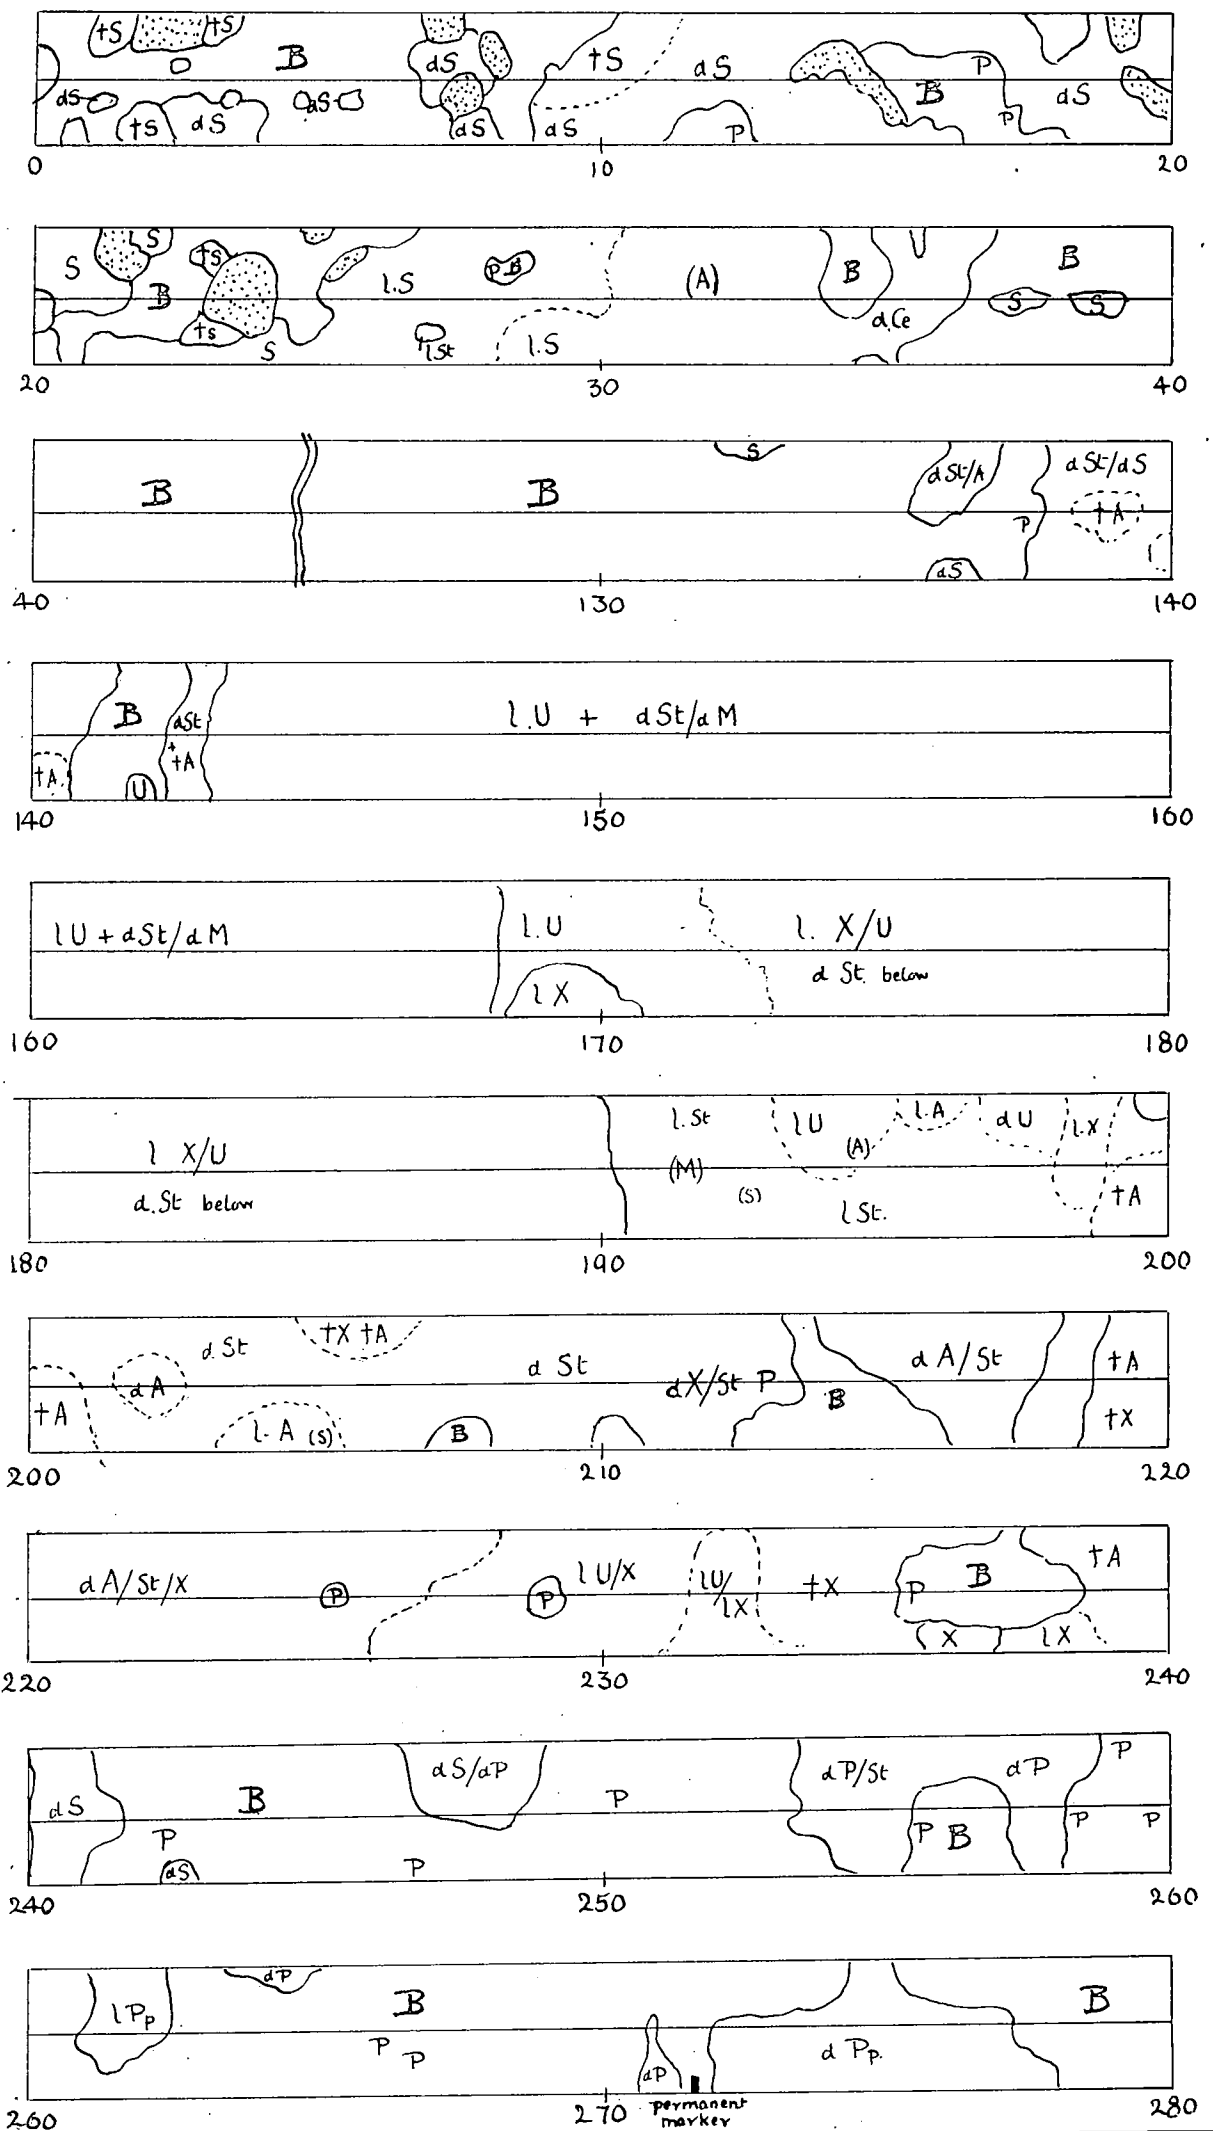 tS tS B dS tS dS P
dS dS B dS
tS dS dS dS P P
0 10 20
S l.S tS P B B B
B l.S (A) S S
tS S lSt l.S d.Ce
20 30 40
B B S dSt/A dSt/dS
P tA
dS
40 130 140
B dSt l.U + dSt/dM
tA U + tA
140 150 160
lU + dSt/dM l.U l. X/U
lX d St. below
160 170 180
l X/U l.St lU (A) l.A dU l.X
d.St below (M) (S) l St. tA
180 190 200
d.St tX tA d St dX/St P dA/St tA
dA B
tA l.A (S) B tX
200 210 220
dA/St/X P P lU/X lU/lX tX P B tA
X lX
220 230 240
dS B dS/dP P dP/St dP P
P P B P P
dS P
240 250 260
lPp dP B B
P P dP d Pp.
260 270 permanent marker 280